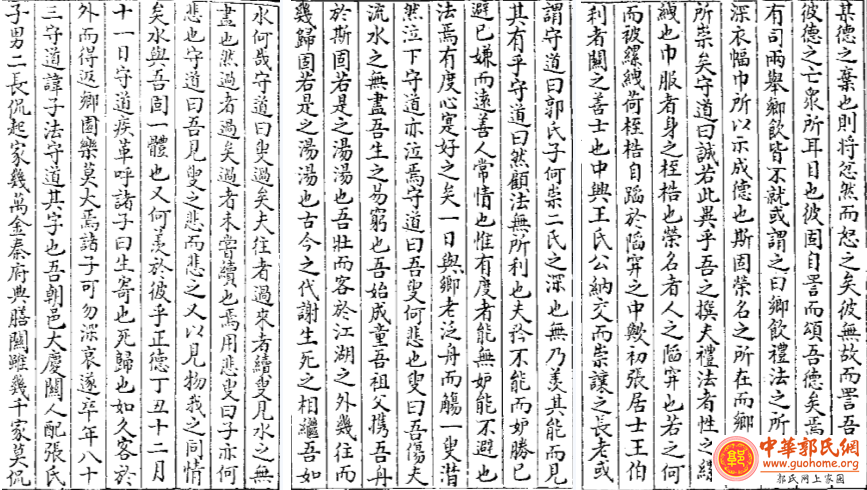 某德之棄也則将忽然而恕之矣彼無故而詈吾
彼德之亡衆所耳目也彼固自詈而頌吾德矣焉
有司兩舉鄉飲皆不就或謂之曰鄉飲禮法之所
深衣幅巾所以示成德也斯固榮名之所在而鄉
所崇矣守道曰誠若此異乎吾之撰夫禮法者性之縲
絏也巾服者身之桎梏也榮名者人之陷穽也若之何
而被縲絏荷桎梏自蹈於陷穽之中歟初張居士王伯
利者關之善士也中興王氏公納交而崇讓之長老或
謂守道曰郭氏子何崇二氏之深也無乃羨其能而見
其有乎守道曰然顧法無所利也夫矜不能而妒勝已
避已嫌而遠善人常情也惟有度者能無妒能不避也
法焉有度心寔好之矣一日與鄉老泛舟而觴一叟潸
然泣下守道亦泣焉守道曰吾叟何悲也叟曰吾傷夫
流水之無盡吾生之易窮也吾始成童吾祖父携吾舟
於斯固若是之湯湯也吾壯而客於江湖之外幾往而
幾歸固若是之湯湯也古今之代謝生死之相繼吾如
水何哉守道曰叟過矣夫往者過來者續叟見水之無
盡也然過者過矣過者未嘗續也焉用悲叟曰子亦何
悲也守道曰吾見叟之悲而悲之又以見物我之同情
矣水與吾固一體也又何羨於彼乎正德丁丑十二月
十一日守道疾革呼諸子曰生寄也死歸也如久客於
外而得返鄉國樂莫大焉諸子可勿深哀遂卒年八十
三守道諱子法守道其字也吾朝邑大慶關人配張氏
子男二長侃起家幾萬金秦府典膳關雖幾千家莫侃
中華郭氏網
www.guohome.org
郭氏网上家園